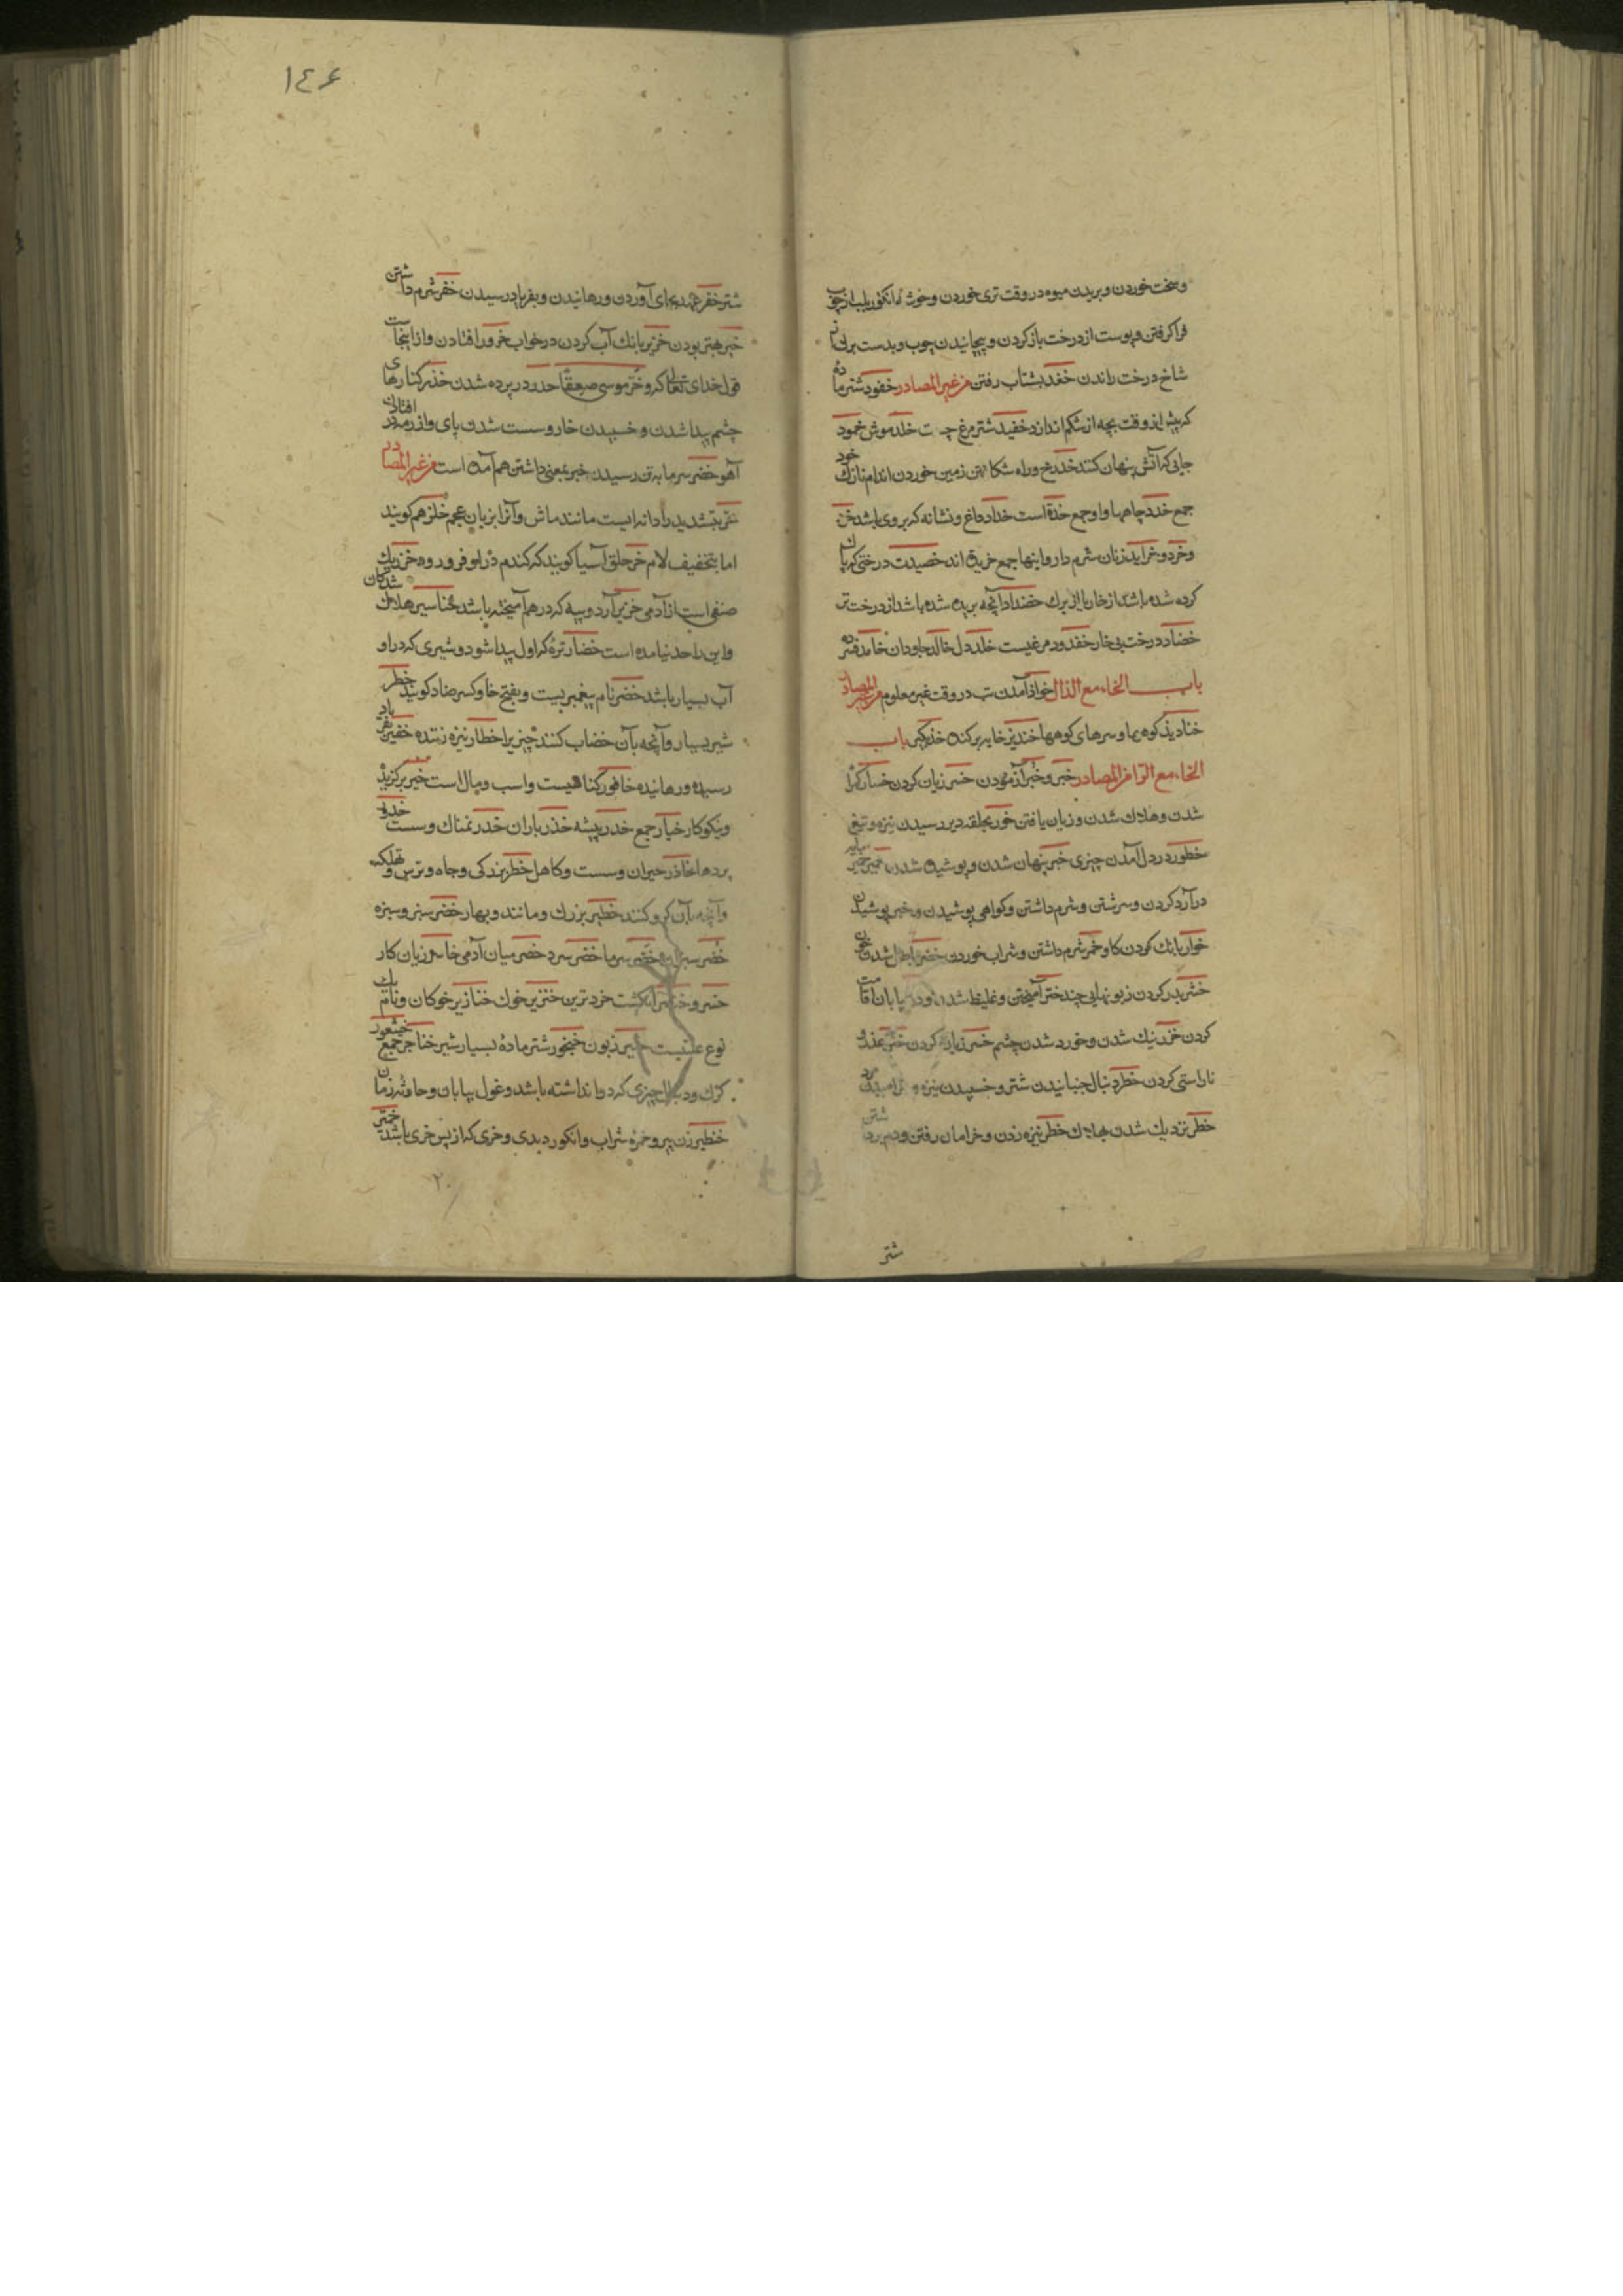 وسخت خوردن و بریدن میوه در وقت تری خوردن و خوشه انکور بلب از چوب
فرا کرفتن و پوست از درخت باز کردن و پیچانیدن چوب و بدست برلی
شاخ درخت راندن خغد بشتاب رفتن من غیر المصادر خفود شتر ماده
که پیش از وقت بچه از شکم اندازد خفید شتر مرغ خلد موش خمود
جایی که آتش پنهان کنند خدد رخ و راه شکافتن زمین خوردن اندام نازک خود
جمع خدد چاهها و او جمع خدة است خداد داغ و نشانه که بر روی باشد
و خرد و خراید زنان شرم دار و اینها جمع خریدة اند خضیدت درختی که
کرده شده باشد از خار از برک خضاد آنچه بریده شده باشد از درخت تر
خضاد درخت بی خار خفدود مرغیست خلد دل خالد جاودان خامد فسرده
باب الخاء مع الذال خواذ آمدن تب در وقت غیر معلوم من غیر المصادر
خناذید کوه بها و سرهای کوهها خندیذ خایه برکنده باب
الخاء مع الرا من المصادر خبر و خبر آزمودن خسر زیان کردن خسار کمراه
شدن و هلاک شدن و زیان یافتن خور بحلقه دبر رسیدن نیزه و تیغ
خطور در دل آمدن چیزی خبر پنهان شدن و پوشیده شدن خمیر مایه
در آرد کردن و سرشتن و شرم داشتن و کواهی پوشیدن و خبر پوشیدن
خوار بانک کردن کاو خمر شرم داشتن و شراب خوردن خضر باطل شدن خون
خثر بدر کردن زبونهایی چند ختر آمیختن و غلیظ شدن و در بیابان اقامت
کردن خزر نیک شدن و خورد شدن چشم خسر زیان کردن ختر عذر و
ناراستی کردن خطر دنبال جنبانیدن شتر و خسپیدن نیزه و
خطر نزدیک شدن بهلاک خطر نیزه زدن و خرامان رفتن و دم برداشتن
شتر
١٤۶
شتر خفر عهد بجای آوردن و رهانیدن و بفریاد رسیدن خفر شرم داشتن
خیر بهتر بودن خریر بانک آب کردن در خواب خرور افتادن و از اینجاست
قول خدای تعالی که و خر موسی صعقا خدر در پرده شدن خذر کنارهای
چشم پیدا شدن و خسپیدن خار و سست شدن پای و از رمه در افتادن
آهو خضر سرما به تن رسیدن خبر بمعنی داشتن هم آمده است من غیر المصادر
بتشدید را دانه ایست مانند ماش و آنرا بزبان عجم خلر هم کویند
اما بتخفیف لام خر حلق آسیا کویند که کندم در او فرو رود خزریک
صنفی است از آدمی خزیر آرد و پیه که در هم آمیخته باشد خناسیر هلاک شدکان
و این را واحد نیامده است خضار تره که اول پیدا شود و شیری که در او
آب بسیار باشد خضر نام پیغمبریست و بفتح خا و کسر ضاد کویند خطر
شیر بسیار و آنچه بآن خضاب کنند چیز را خطار نیزه زننده خفیر بفریاد
رسیده و رهانیده خافور کیاهیست و اسب و مال است خیر برکزیده
و نیکوکار خیار جمع خدر پیشه خذر باران خدر نمناک و سست خدور
پردها خاذر حیران و سست و کاهل خطر بزرکی و جاه و ترس و تهلکه
و آنچه بآن کرو کنند خطیر بزرک و مانند و بهار خضر سبز و سبزه
خضر سبزان خضر سرما خضر سرد خصر میان آدمی خاسر زیان کار
خسر و خنصر انکشت خردترین خنزیر خوک خنازیر خوکان و نام یک
نوع علتیست خیر زبون خنجور شتر ماده بسیار شیر خناجر جمع خیثعور
کرک و دنبال چیزی که دوام نداشته باشد و غول بیابان و حادثه زمان
خنظیر زن پیر و خمره شراب و انکور دبدی و خری که از پس خری باشد خمتر
٢٠